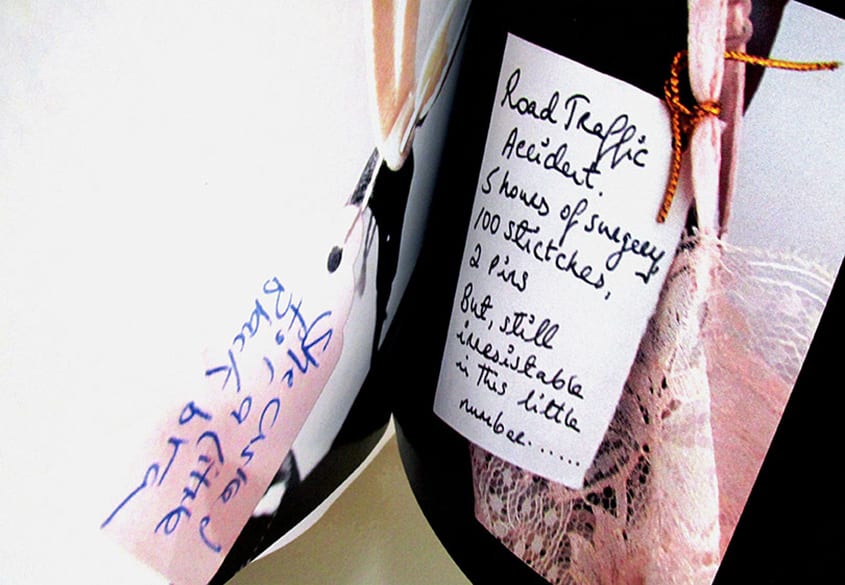 She
a little
Black bra
Road Traffic
Accident.
5 hours of surgery,
100 stictches,
2 Pins
But, still
irresistable
in this little
number.......